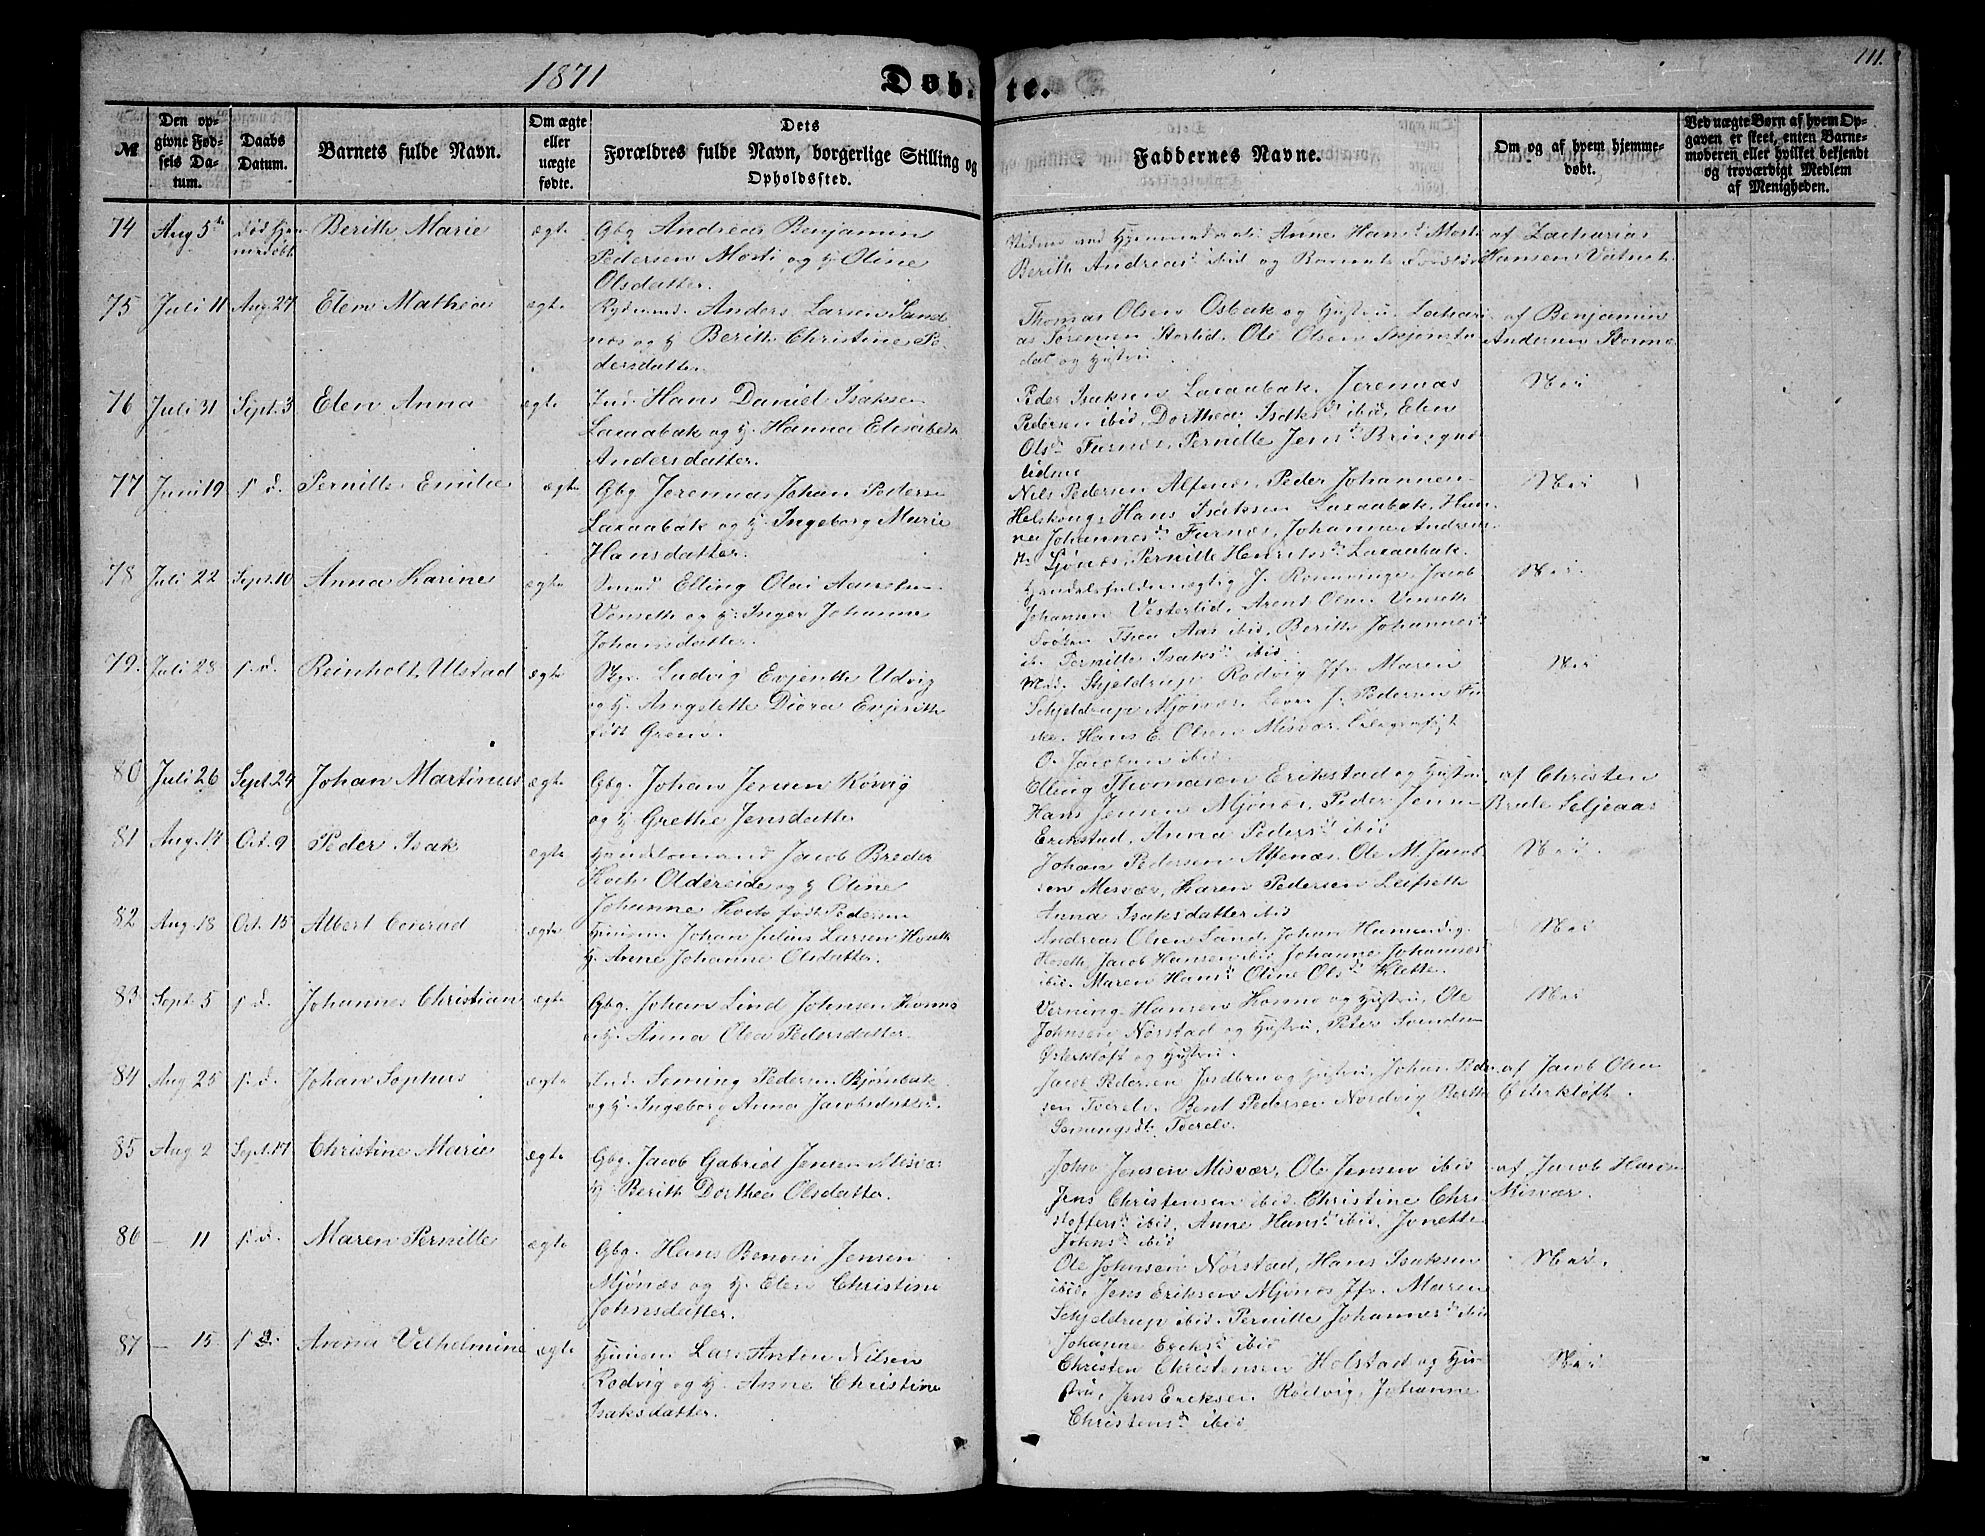 1871
Døbte.
111.
№
Den opgivne Fødsels Datum.
Daabs Datum.
Barnets fulde Navn.
Om ægte eller uægte fødte.
Dets Forældres fulde Navn, borgerlige Stilling og Opholdssted.
Faddernes Navne.
Om og af hvem hjemmedøbt.
Ved uægte Børn af hvem Opgaven er skeet, enten Barnemoderen eller hvilket bekjendt og troværdigt Medlem af Menigheden.
74 Aug 5te Berith Marie ægte Gbg Andreas Benjamin
Pedersen Mosti og H. Oline
Olsdatter.
Anne Hansd. Mosti
Berith Andreasd. ibid og Barnets
af Zacharias
Hansen Vatnet
75 Juli 11 Aug. 27 Elen Mathea ægte Anders Larsen Sand-
næs og H. Berith Christine Pe-
dersdatter.
Thomas Olsen Osbak og Hustru, Zachari-
as Sørensen Storlid, Ole Olsen Skjønstu-
dal og Hustru
af Benjamin
Andersen
76 Juli 31 Sept. 3 Elen Anna ægte Ind. Hans Daniel Isaksen
Laxaabak og H. Hanna Elisabeth
Andersdatter.
Peder Isaksen Laxaabak, Jeremias
Pedersen ibid, Dorthea Isaksd. ibid, Elen
Olsd. Furnæs, Pernille Jensd. Bringsli
Nei
77 Juni 19 s. d. Pernille Emilie ægte Gbg Jeremias Johan Pedersen
Laxaabak og H. Ingeborg Marie
Hansdatter.
Nils Pedersen Alfenæs, Peder Johannesen
Hans Isaksen Laxaabak, Han-
na Johannesd. Furnæs, Johanna Andreas-
Pernille Henriksd. Laxaabak.
Nei
78 Juli 22 Sept. 10 Anna Karine ægte Elling Olai
Venseth og H. Inger Johanna
Johansdatter.
Handelsfuldmægtig J. Rosenvinge, Jacob
Johansen Vesterlid, Arent Olsen Venseth
Frøken Thea Aas ibid, Berith Johannesd.
ib. Pernille Isaksd. ibid
Nei
79. Juli 28 s. d. Reinholt Ulstad ægte Ludvig Evjenth Udvig
og H. Diora Evjenth
født Green.
Mad. Skjeldrup Rødvig, Jfr. Maren
Schjeldrup Mjønæs, J. Pedersen Fu-
ske, Hans E. Olsen Misvær, Telegrafist
O. Jacobsen ibid.
Nei
80 Juli 26 Sept. 24 Johan Martinus ægte Gbg. Johan Jensen Kørvig
og H Grethe Jensdatter
Elling Thomasen Erikstad og Hustru
Hans Jensen Mjønæs, Peder Jensen
Erikstad, Anna Pedersd. ibid
af Christen
Brude Seljeaas
81 Aug. 14 Oct. 9 Peder Isak ægte Handelsmand Jacob Breder
Koch Oldereide og H Oline
Johanne Koch født Pedersen
Johan Pedersen Alfenæs, Ole M. Jacob-
sen Misvær, Karen Pedersen Leifseth
Anna Isaksdatter ibid
Nei.
82 Aug. 18 Oct. 15 Albert Conrad ægte Husm. Johan Julius Larsen Hoseth
H. Anne Johanne Olsdatter.
Andreas Olsen Sand, Johan
Hoseth, Jacob Hansen ibid Johanne Johannesd.
ibid. Maren Hansd. Oline Olsd. Klette.
Nei
83 Sept. 5 s. d. Johannes Christian ægte Gbg. Johan Lind Johnsen Kvamo
og H. Anna Olea Pedersdatter.
Verning Hansen Kosmo og Hustru, Ole
Johnsen Nørstad og Hustru, Peter Svendsen
Østerkløft og Hustru.
Nei
84 Aug 25 s. d. Johan Sophus ægte Ind. Seming Pedersen Bjørnbak
og H. Ingeborg Anna Jacobsdatter.
Jacob Pedersen Jordbru og Hustru, Johan Peder-
sen Tverelv, Bent Pedersen Nordvig Berith
Semingsdt. Tverelv.
af Jacob Olsen
Østerkløft.
85 Aug 2 Sept. 17 Christine Marie ægte Gbg. Jacob Gabriel Jensen Misvær
H. Berith Dorthea Olsdatter.
John Jensen Misvær, Ole Jensen ibid
Jens Christensen ibid. Christine Chri-
stoffersd. ibid, Anne Hansd. ibid. Jonette
Johnsd. ibid
af Jacob Hansen
Misvær.
86 — 11 s. d. Maren Pernille ægte Gbg. Hans Benoni Jensen
Mjønæs og H. Elen Christine
Johnsdatter.
Ole Johnsen Nørstad, Hans Isaksen
ibid, Jens Eriksen Mjønæs Jfr. Maren
Schjeldrup ibid. Pernille Johannesd. ibid
Johanne Eriksd. ibid
Nei.
87 — 15. s. d. Anna Vilhelmine ægte Husm. Lars Anton Nilsen
Rødvig og H. Anne Christine
Isaksdatter.
Christen Christensen Holstad og Hu-
stru, Jens Eriksen Rødvig, Johanne
Christensd. ibid
Nei